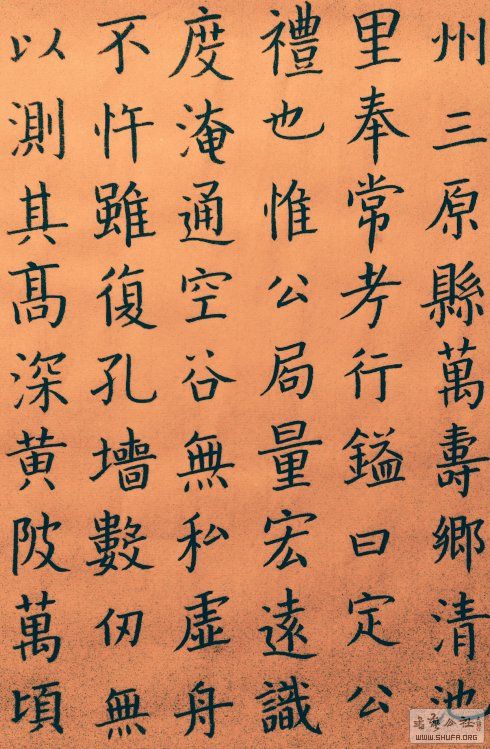 州三原縣萬壽鄉清池
里奉常考行鎰曰定公
禮也惟公局量宏遠識
度淹通空谷無私虛舟
不忤雖復孔墻數仞無
以測其髙深黃陂萬頃
WWW.SHUFA.ORG